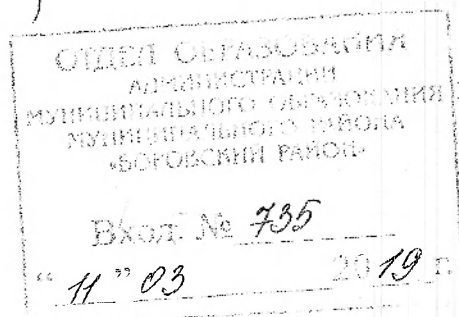 ОТДЕЛ ОБРАЗОВАНИЯ
АДМИНИСТРАЦИИ
МУНИЦИПАЛЬНОГО ОБРАЗОВАНИЯ
МУНИЦИПАЛЬНОГО РАЙОНА
«БОРОВСКИЙ РАЙОН»
Вход. № 735
“ 11 ” 03 2019 г.